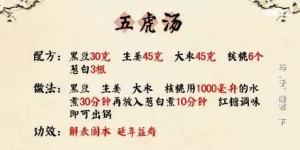 五虎汤
配方：黑豆30克 生姜45克 大米45克 核桃6个
葱白3根
做法：黑豆 生姜 大米 核桃用1000毫升的水
煮30分钟再放入葱白煮10分钟 红糖调味
即可出锅
功效：解表固本 延年益寿